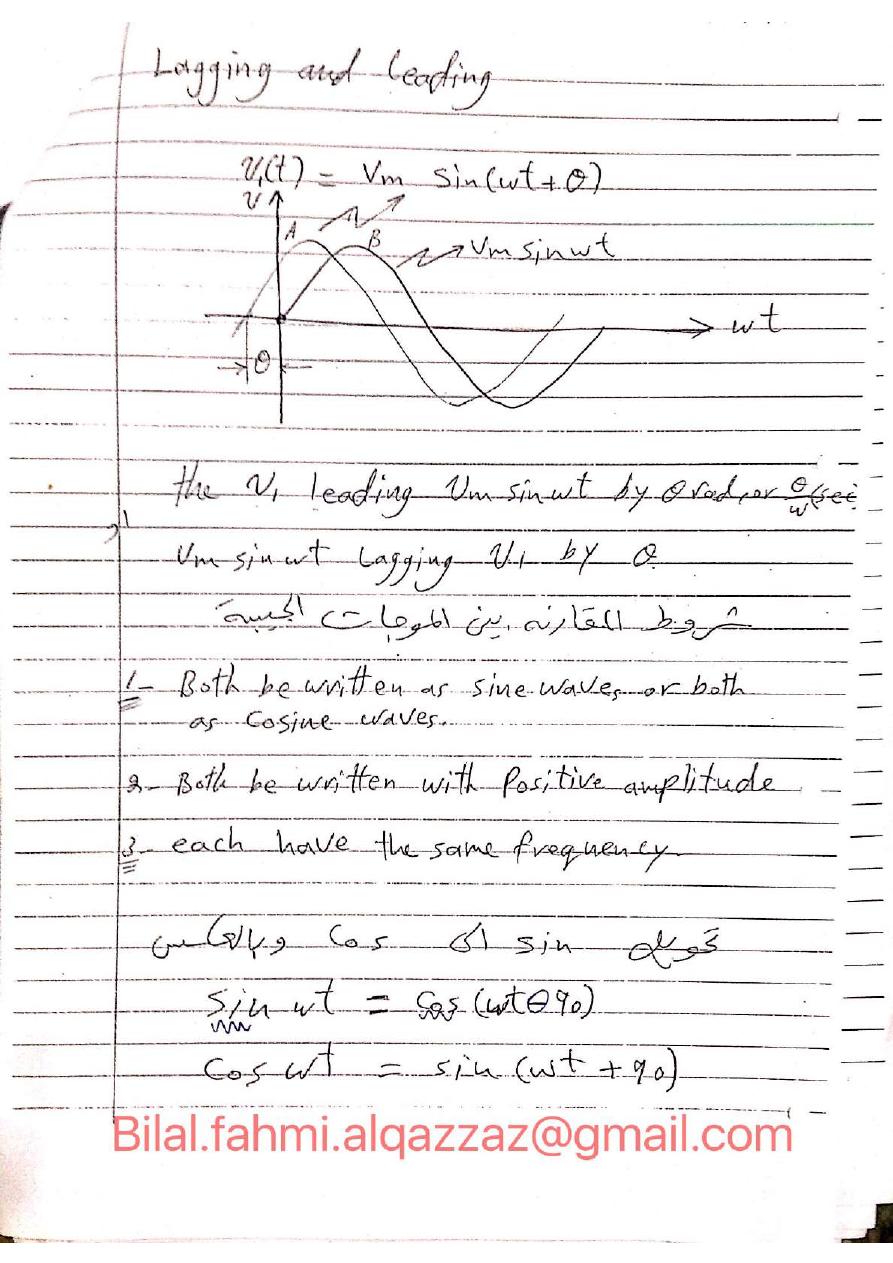 Lagging and leading
V₁(t) = Vm sin(wt + θ)
v
A
B
Vm sin wt
wt
θ
the V₁ leading Vm sin wt by θ rad, or θ/w (sec
Vm sin wt Lagging V₁ by θ
شروط المقارنه بين الموجات الجيبية
1- Both be written as sine waves or both
as Cosine waves.
2- Both be written with Positive amplitude
3- each have the same frequency
تحويل sin الى Cos وبالعكس
sin wt = Cos (wt - 90)
Cos wt = sin (wt + 90)
Bilal.fahmi.alqazzaz@gmail.com